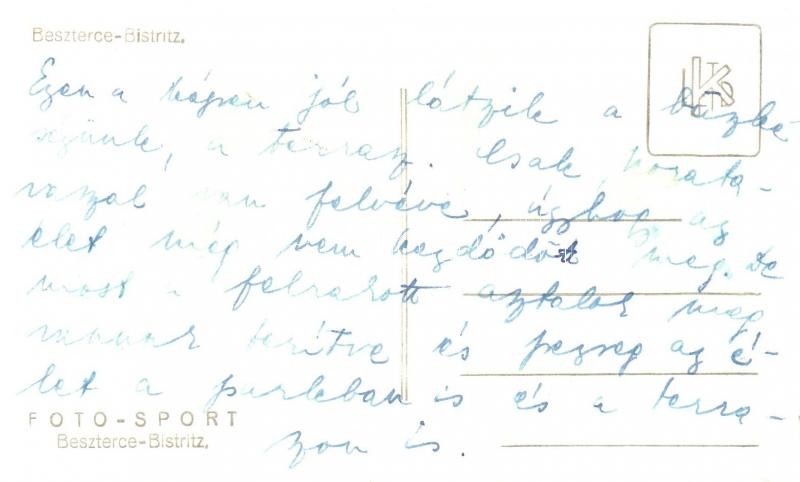 Beszterce-Bistritz.
Ezen a képen jól látszik a házke-
szünk, a terrasz. Csak kora ta-
vasszal van felvéve, úgyhogy az
élet még nem kezdődött meg. De
most a felrakott asztalok meg
vannak terítve és pezseg az é-
let a parkban is és a terra-
szon is.
FOTO-SPORT
Beszterce-Bistritz.